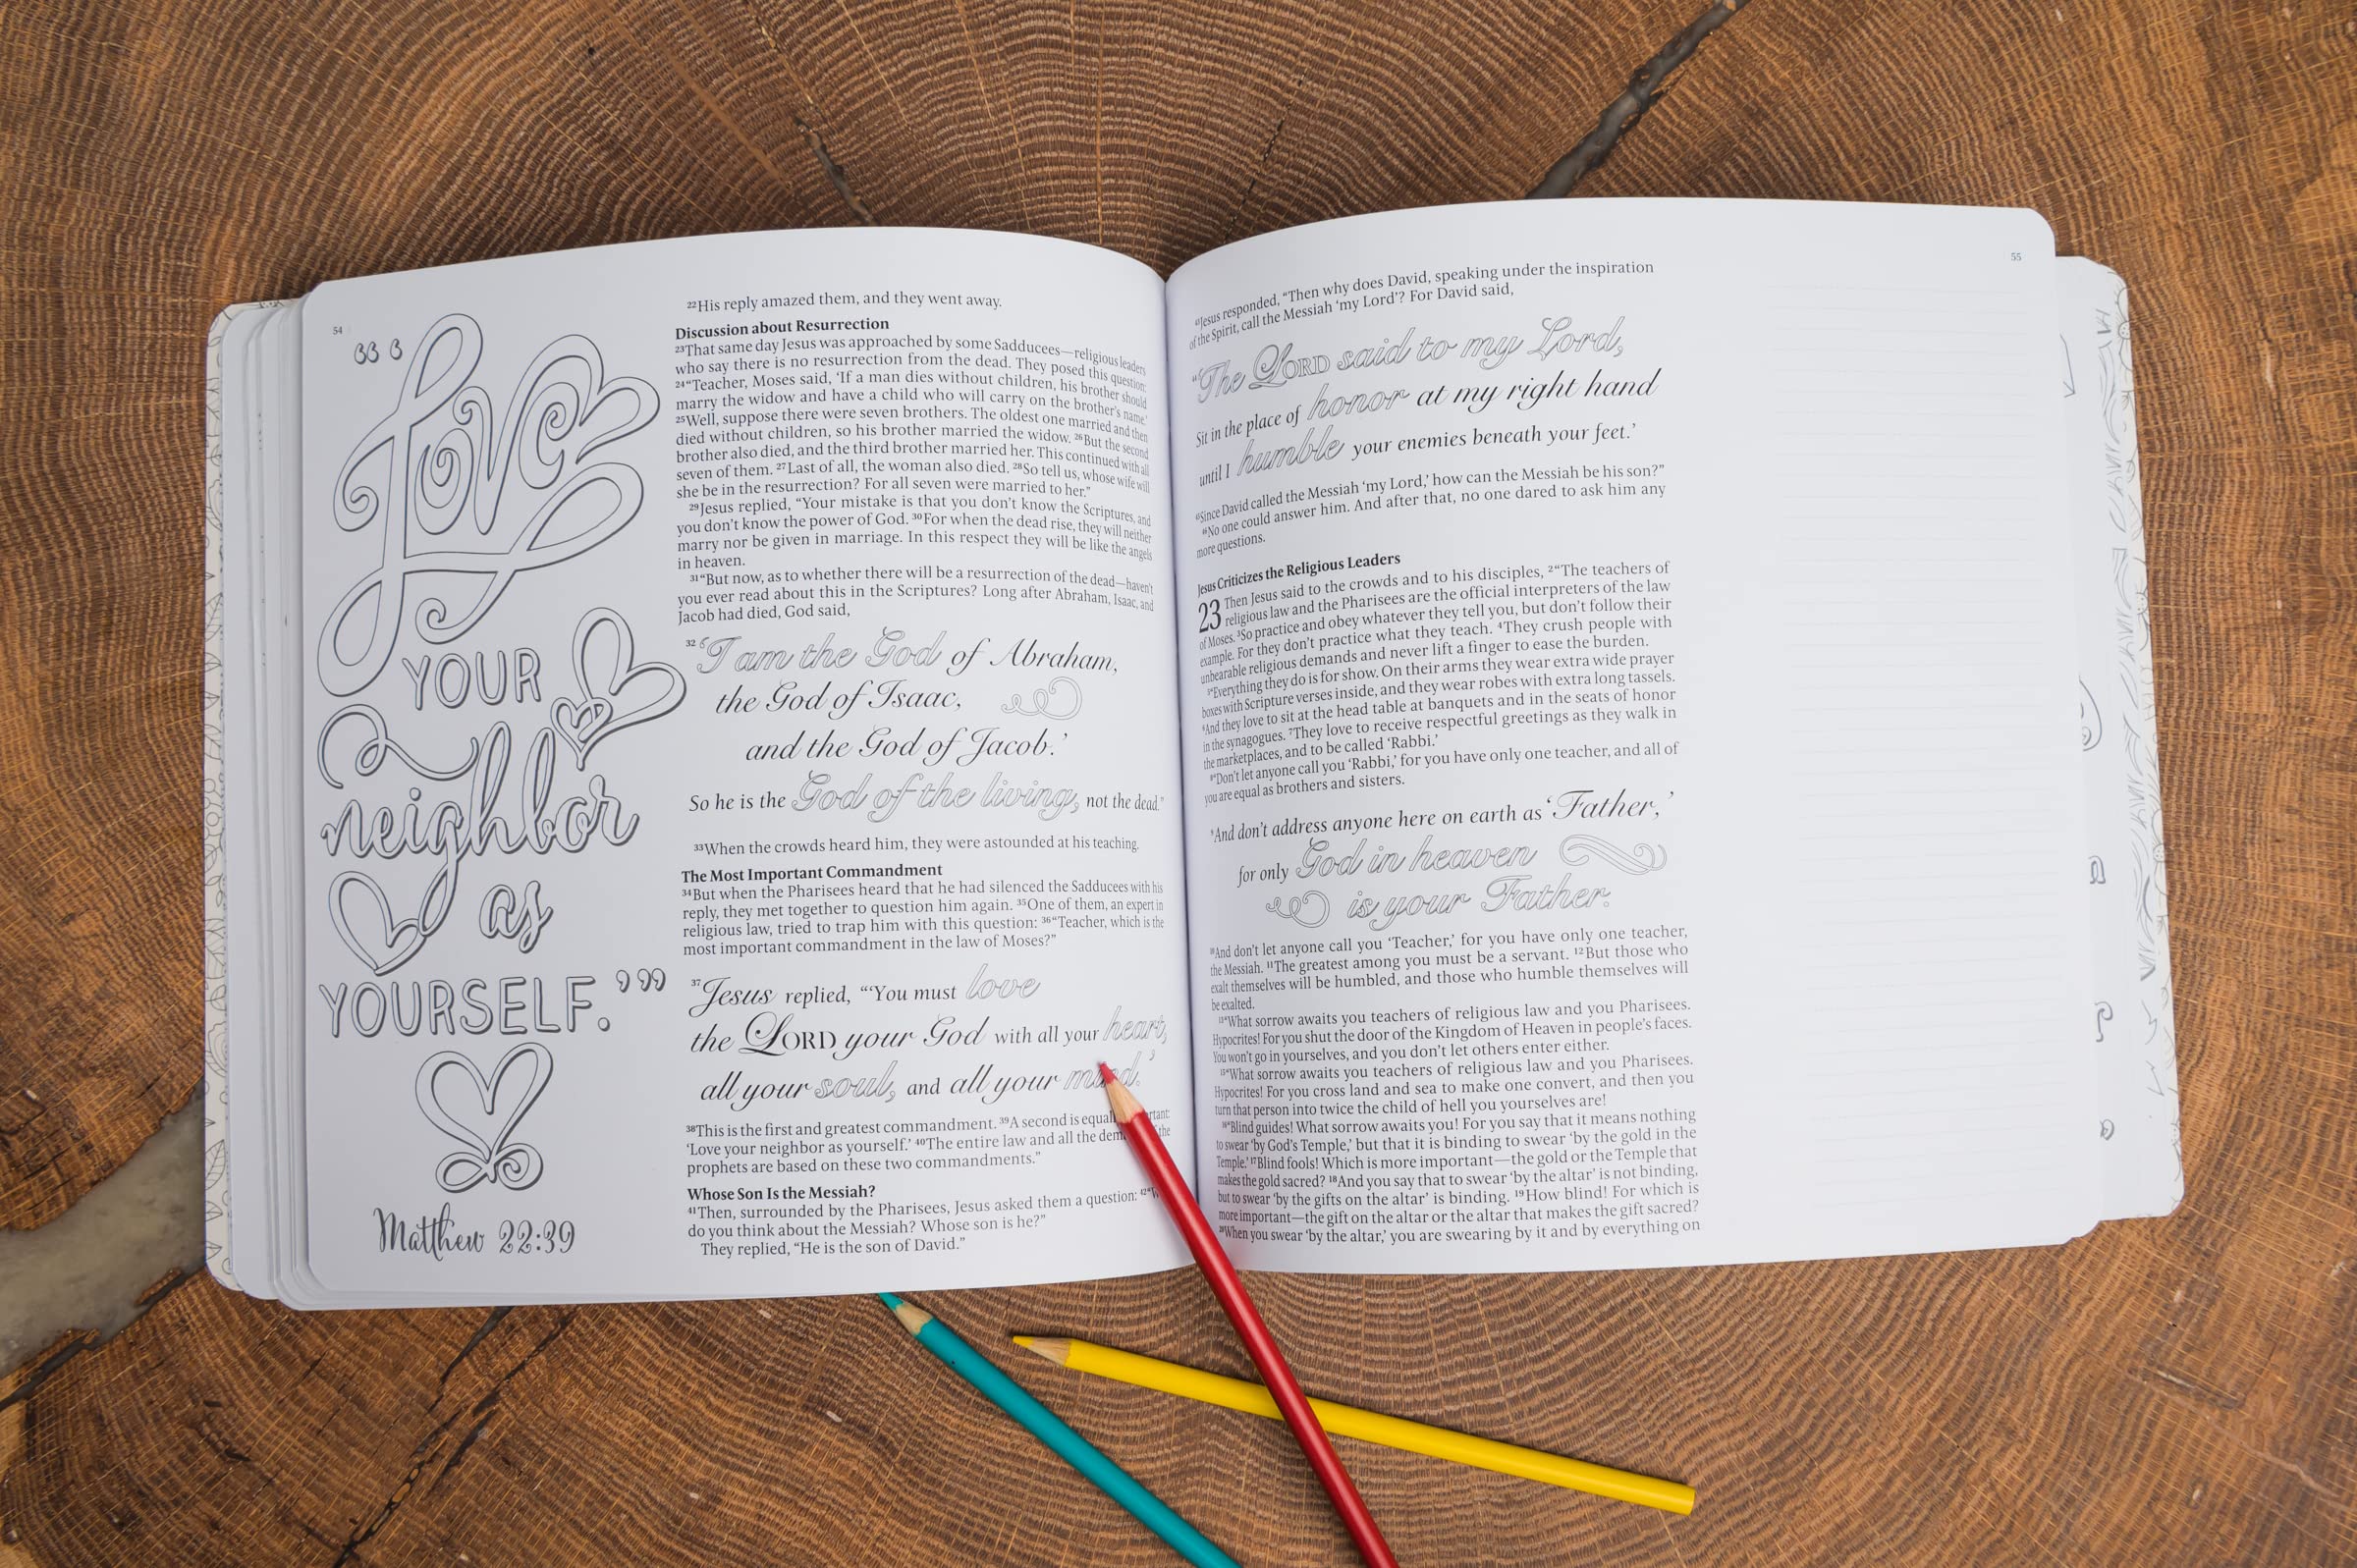 54
“‘Love
YOUR
neighbor
as
YOURSELF.’”
Matthew 22:39
22His reply amazed them, and they went away.
Discussion about Resurrection
23That same day Jesus was approached by some Sadducees—religious leaders
who say there is no resurrection from the dead. They posed this question:
24“Teacher, Moses said, ‘If a man dies without children, his brother should
marry the widow and have a child who will carry on the brother’s name.’
25Well, suppose there were seven brothers. The oldest one married and then
died without children, so his brother married the widow. 26But the second
brother also died, and the third brother married her. This continued with all
seven of them. 27Last of all, the woman also died. 28So tell us, whose wife will
she be in the resurrection? For all seven were married to her.”
29Jesus replied, “Your mistake is that you don’t know the Scriptures, and
you don’t know the power of God. 30For when the dead rise, they will neither
marry nor be given in marriage. In this respect they will be like the angels
in heaven.
31“But now, as to whether there will be a resurrection of the dead—haven’t
you ever read about this in the Scriptures? Long after Abraham, Isaac, and
Jacob had died, God said,
32‘I am the God of Abraham,
the God of Isaac,
and the God of Jacob.’
So he is the God of the living, not the dead.”
33When the crowds heard him, they were astounded at his teaching.
The Most Important Commandment
34But when the Pharisees heard that he had silenced the Sadducees with his
reply, they met together to question him again. 35One of them, an expert in
religious law, tried to trap him with this question: 36“Teacher, which is the
most important commandment in the law of Moses?”
37Jesus replied, “‘You must love
the LORD your God with all your heart,
all your soul, and all your mind.’
38This is the first and greatest commandment. 39A second is equally
‘Love your neighbor as yourself.’ 40The entire law and all the the
prophets are based on these two commandments.”
Whose Son Is the Messiah?
41Then, surrounded by the Pharisees, Jesus asked them a question: 42
do you think about the Messiah? Whose son is he?”
They replied, “He is the son of David.”
55
43Jesus responded, “Then why does David, speaking under the inspiration
of the Spirit, call the Messiah ‘my Lord’? For David said,
44‘The LORD said to my Lord,
Sit in the place of honor at my right hand
until I humble your enemies beneath your feet.’
45Since David called the Messiah ‘my Lord,’ how can the Messiah be his son?”
46No one could answer him. And after that, no one dared to ask him any
more questions.
Jesus Criticizes the Religious Leaders
23 Then Jesus said to the crowds and to his disciples, 2“The teachers of
religious law and the Pharisees are the official interpreters of the law
of Moses. 3So practice and obey whatever they tell you, but don’t follow their
example. For they don’t practice what they teach. 4They crush people with
unbearable religious demands and never lift a finger to ease the burden.
5“Everything they do is for show. On their arms they wear extra wide prayer
boxes with Scripture verses inside, and they wear robes with extra long tassels.
6And they love to sit at the head table at banquets and in the seats of honor
in the synagogues. 7They love to receive respectful greetings as they walk in
the marketplaces, and to be called ‘Rabbi.’
8“Don’t let anyone call you ‘Rabbi,’ for you have only one teacher, and all of
you are equal as brothers and sisters.
9And don’t address anyone here on earth as ‘Father,’
for only God in heaven
is your Father.
10And don’t let anyone call you ‘Teacher,’ for you have only one teacher,
the Messiah. 11The greatest among you must be a servant. 12But those who
exalt themselves will be humbled, and those who humble themselves will
be exalted.
13“What sorrow awaits you teachers of religious law and you Pharisees.
Hypocrites! For you shut the door of the Kingdom of Heaven in people’s faces.
You won’t go in yourselves, and you don’t let others enter either.
15“What sorrow awaits you teachers of religious law and you Pharisees.
Hypocrites! For you cross land and sea to make one convert, and then you
turn that person into twice the child of hell you yourselves are!
16“Blind guides! What sorrow awaits you! For you say that it means nothing
to swear ‘by God’s Temple,’ but that it is binding to swear ‘by the gold in the
Temple.’ 17Blind fools! Which is more important—the gold or the Temple that
makes the gold sacred? 18And you say that to swear ‘by the altar’ is not binding,
but to swear ‘by the gifts on the altar’ is binding. 19How blind! For which is
more important—the gift on the altar or the altar that makes the gift sacred?
20When you swear ‘by the altar,’ you are swearing by it and by everything on